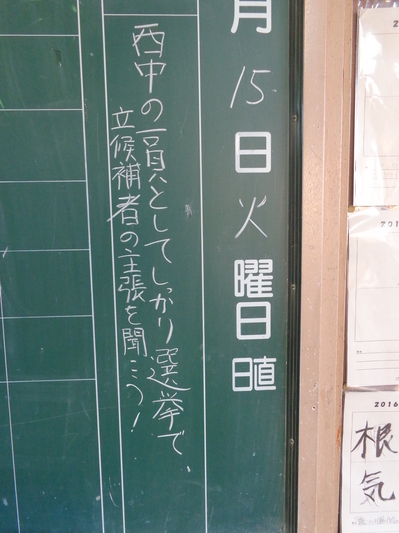 月15日火曜日 日直
西中の一員としてしっかり選挙で、
立候補者の主張を聞こう!
2016
根気